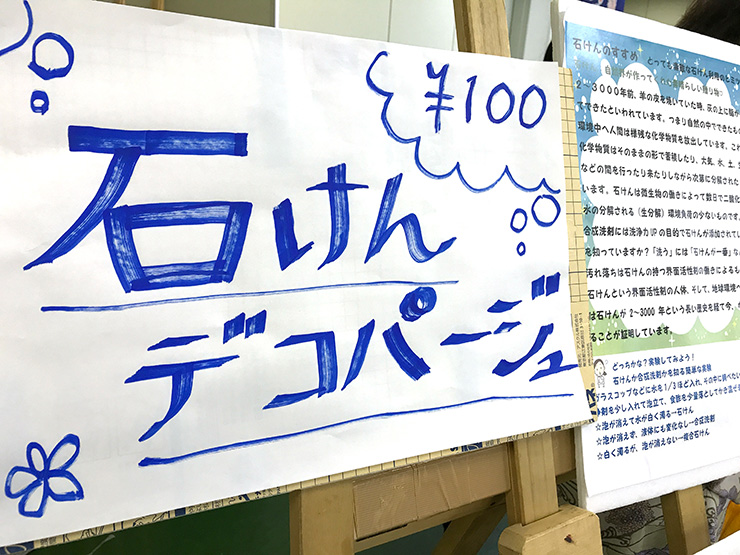 ¥100
石けん
デコパージュ
石けんのすすめ とっても
2～3000年前、羊の肉を焼いていた時、灰の上に脂が
てできたといわれています。つまり自然の中でできたもの
環境中へ人間は様残な化学物質を放出しています。これ
化学物質はそのままの形で蓄積したり、大気、水、土、生
などの間を行ったり来たりしながら次第に分解された
います。石けんは微生物の働きによって数日で二酸化
水の分解される（生分解）環境負荷の少ないものです。
合成洗剤には洗浄力UPの目的で石けんが添加されてい
を知っていますか？「洗う」には「石けんが一番」な
汚れ落ちは石けんの持つ界面活性剤の働きによるも
石けんという界面活性剤の人体、そして、地球環境へ
は石けんが2～3000年という長い歴史を経て今、
ることが証明しています。
どっちかな？実験してみよう！
石けんか合成洗剤かを知る簡単な実験
ラスコップなどに水を1/3ほど入れ、その中に調べたい
剤を少し入れて泡立て、食酢を少量落としてかき混ぜ
☆泡が消えて水が白く濁る→石けん
☆泡が消えず、液体にも変化なし→合成洗剤
☆白く濁るが、泡が消えない→複合石けん